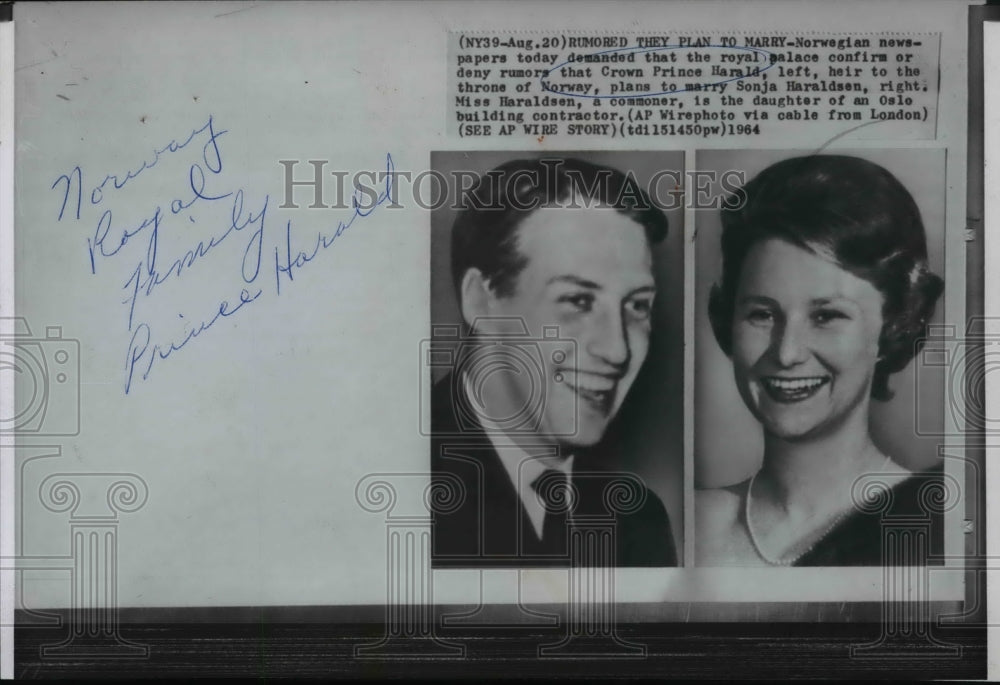 (NY39-Aug.20)RUMORED THEY PLAN TO MARRY-Norwegian news-
papers today demanded that the royal palace confirm or
deny rumors that Crown Prince Harald, left, heir to the
throne of Norway, plans to marry Sonja Haraldsen, right.
Miss Haraldsen, a commoner, is the daughter of an Oslo
building contractor.(AP Wirephoto via cable from London)
(SEE AP WIRE STORY)(td1151450pw)1964
Norway
Royal
Family
Prince Harald
HISTORIC IMAGES